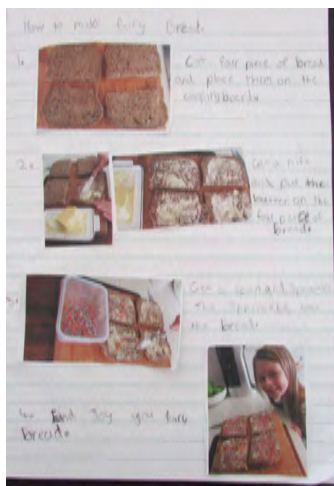 How to make fairy Bread
1. Get four piece of bread
and place them on the
choping board.
2. Get a nife
and put the
butter on the
four piece of
bread.
3. Get a spoon and
the sprinkles over
the bread.
4. joy you fairy
bread.